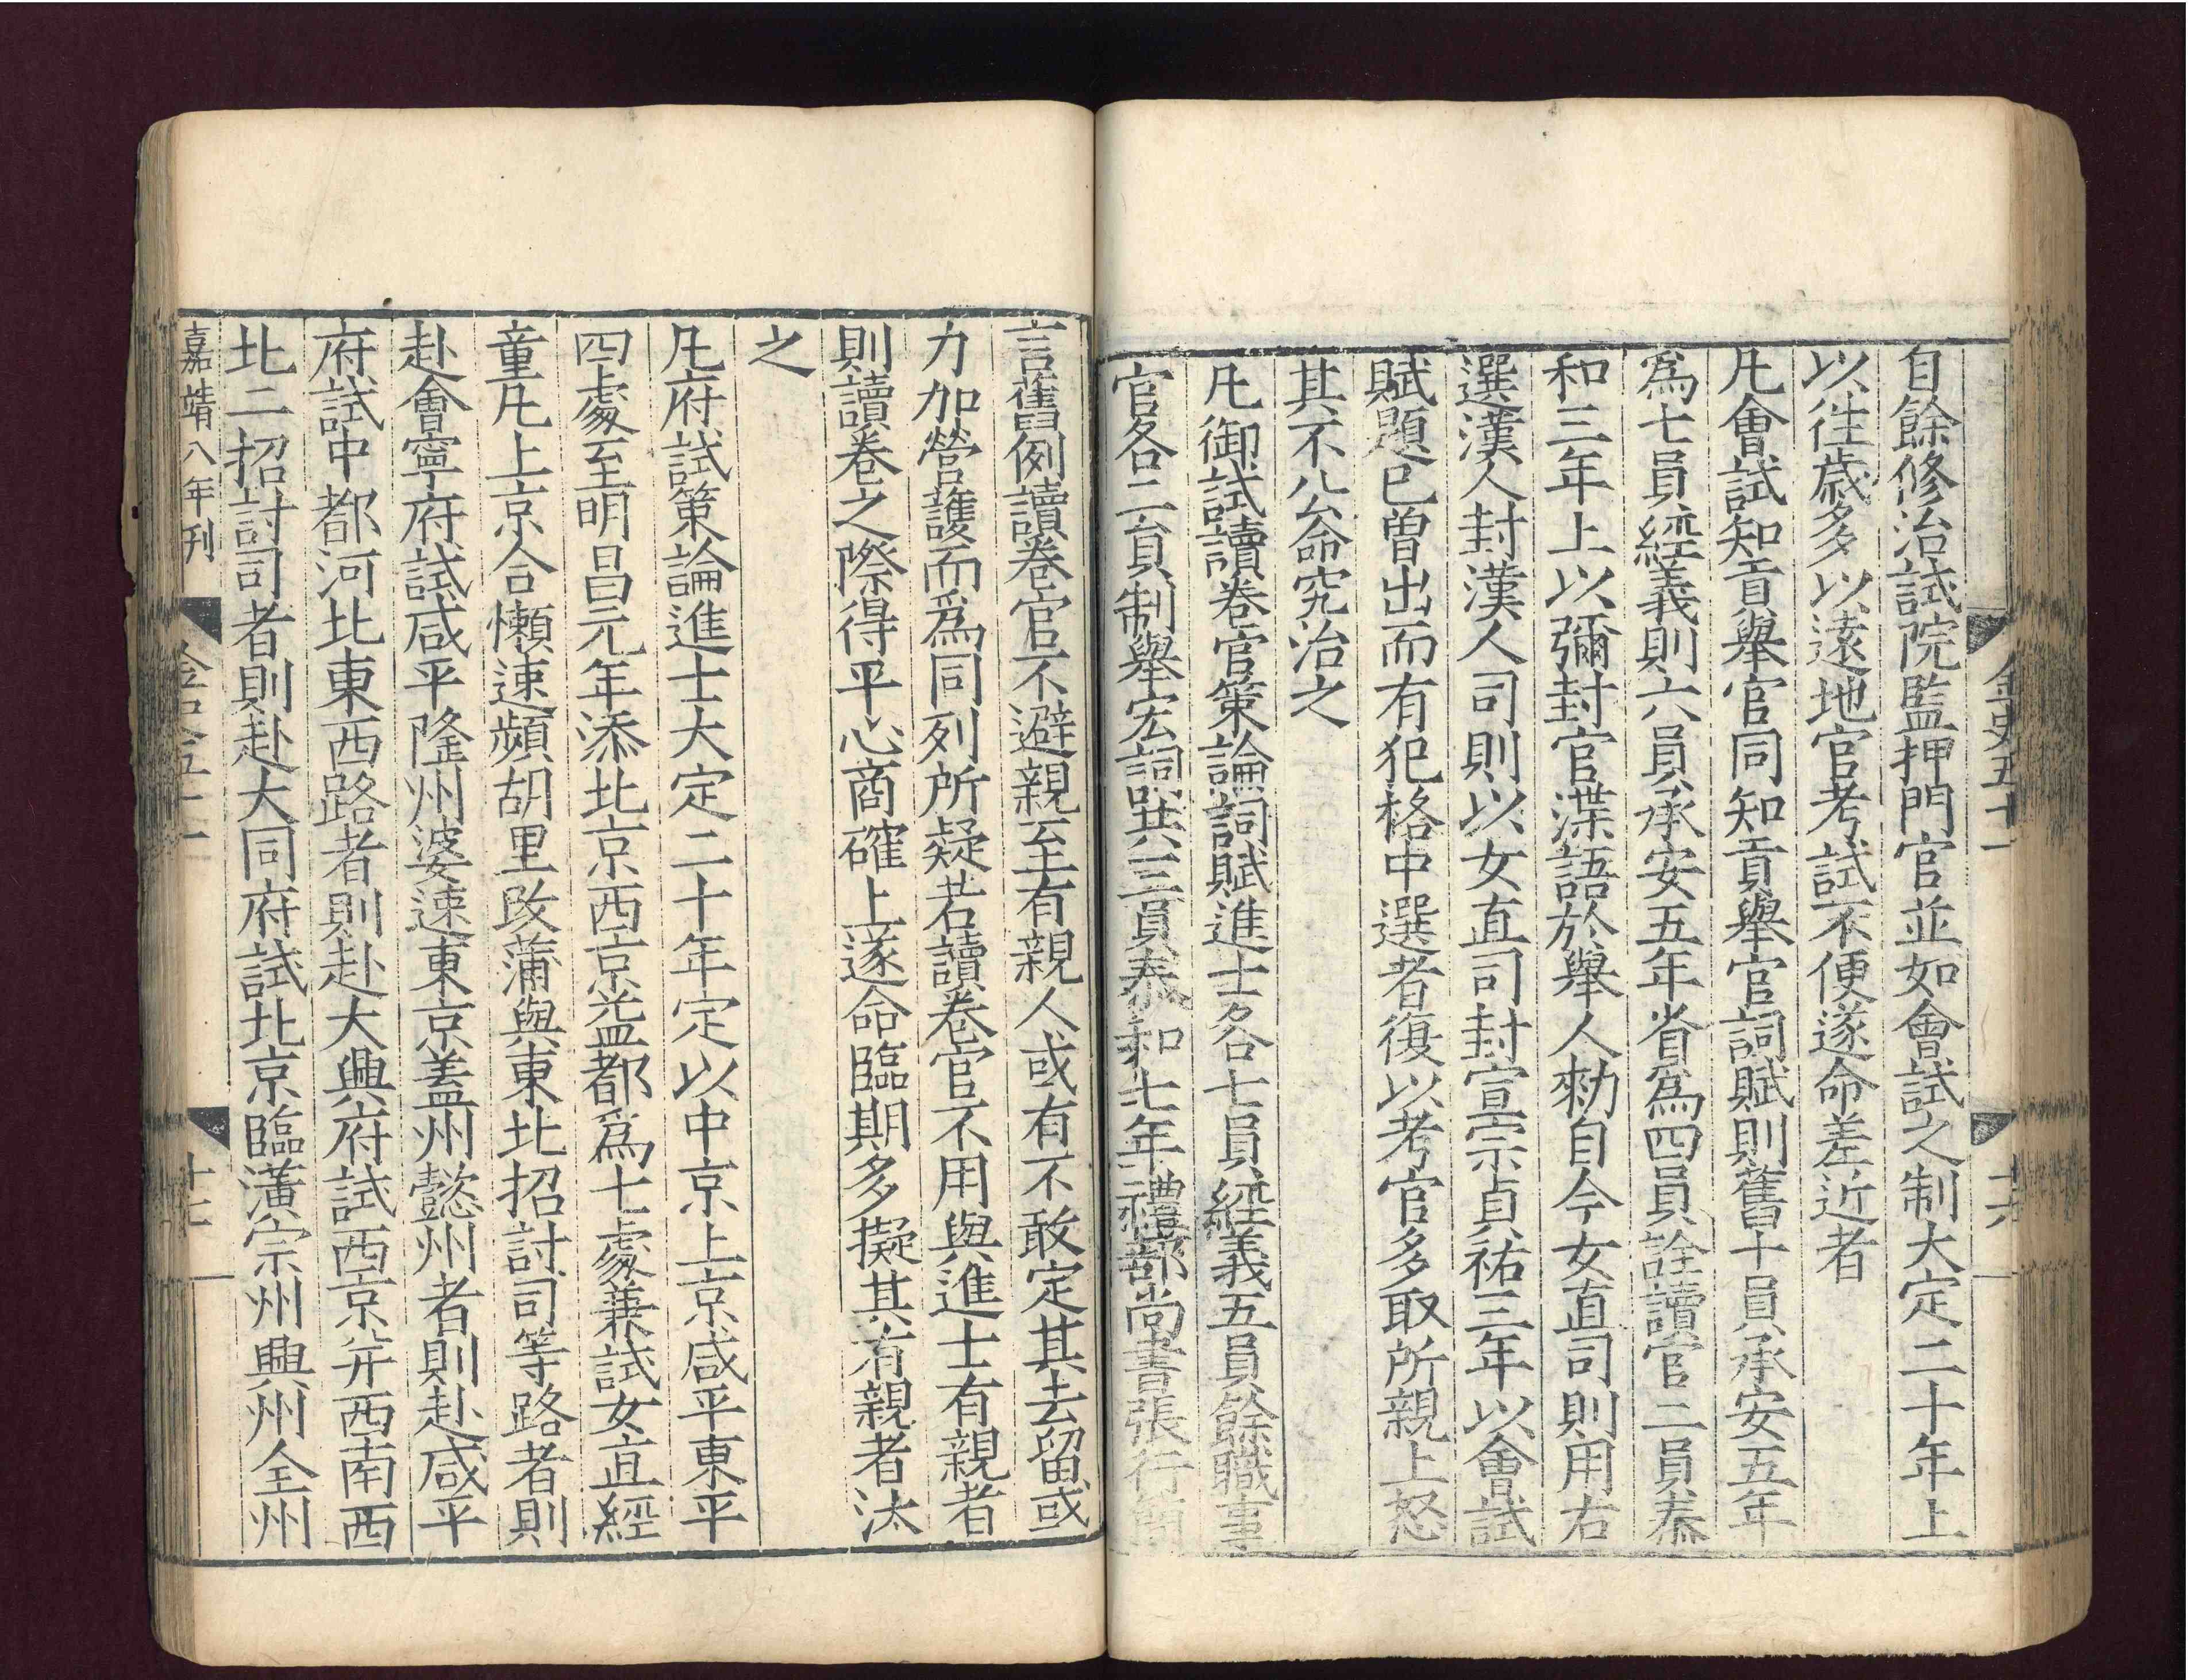 金史五十一
十六
自餘修治試院監押門官並如會試之制大定二十年上
以往歲多以遠地官考試不便遂命差近者
凡會試知貢舉官同知貢舉官詞賦則舊十員承安五年
爲七員經義則六員承安五年省爲四員詮讀官二員泰
和三年上以彌封官渫語於舉人勑自今女直司則用右
選漢人封漢人司則以女直司封宣宗貞祐三年以會試
賦題已曽出而有犯格中選者復以考官多取所親上怒
其不公命究治之
凡御試讀卷官策論詞賦進士各七員經義五員餘職事
官各二員制舉宏詞共三員泰和七年禮部尚書張行簡
言舊例讀卷官不避親至有親人或有不敢定其去留或
力加營護而爲同列所疑若讀卷官不用與進士有親者
則讀卷之際得平心商確上遂命臨期多擬其有親者汰
之
凡府試策論進士大定二十年定以中京上京咸平東平
四處至明昌元年添北京西京益都爲七處兼試女直經
童凡上京合懶速頻胡里改蒲與東北招討司等路者則
赴會寧府試咸平隆州婆速東京盖州懿州者則赴咸平
府試中都河北東西路者則赴大興府試西京并西南西
北二招討司者則赴大同府試北京臨潢宗州興州全州
嘉靖八年刊
十七